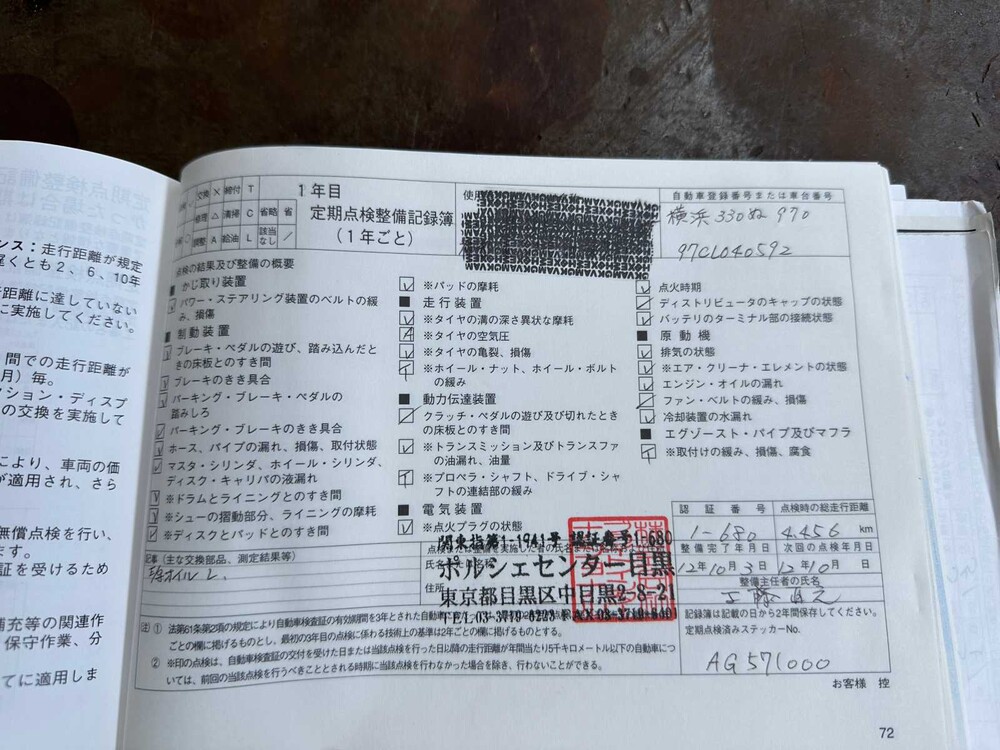 ンス：走行距離が規定
遅くとも２、６、10年
距離に達していない
に実施してください。
間での走行距離が
月）毎。
クション・ディスプ
の交換を実施して
により、車両の価
が適用され、さら
無償点検を行い、
ます。
証を受けるため
補充等の関連作
保守作業、分
てに適用しま
交換 × 締付 T
修理 △ 清掃 C 省略 省
調整 A 給油 L 該当なし ／
1年目
定期点検整備記録簿
（1年ごと）
自動車登録番号または車台番号
横浜 330 ぬ 970
97CL040592
点検の結果及び整備の概要
■ かじ取り装置
パワー・ステアリング装置のベルトの緩
み、損傷
■ 制動装置
ブレーキ・ペダルの遊び、踏み込んだと
きの床板とのすき間
ブレーキのきき具合
パーキング・ブレーキ・ペダルの
踏みしろ
パーキング・ブレーキのきき具合
ホース、パイプの漏れ、損傷、取付状態
マスタ・シリンダ、ホイール・シリンダ、
ディスク・キャリパの液漏れ
※ドラムとライニングとのすき間
※シューの摺動部分、ライニングの摩耗
※ディスクとパッドとのすき間
※パッドの摩耗
■ 走行装置
※タイヤの溝の深さ異状な摩耗
A ※タイヤの空気圧
※タイヤの亀裂、損傷
T ※ホイール・ナット、ホイール・ボルト
の緩み
■ 動力伝達装置
クラッチ・ペダルの遊び及び切れたとき
の床板とのすき間
※トランスミッション及びトランスファ
の油漏れ、油量
T ※プロペラ・シャフト、ドライブ・シャ
フトの連結部の緩み
■ 電気装置
※点火プラグの状態
点火時期
ディストリビュータのキャップの状態
バッテリのターミナル部の接続状態
■ 原動機
排気の状態
※エア・クリーナ・エレメントの状態
エンジン・オイルの漏れ
ファン・ベルトの緩み、損傷
冷却装置の水漏れ
■ エグゾースト・パイプ及びマフラ
T ※取付けの緩み、損傷、腐食
記事（主な交換部品、測定結果等）
オイル L.
関東指第1-1941号 認証番号1-680
ポルシェセンター目黒
東京都目黒区中目黒2-8-21
住所
認証番号 点検時の総走行距離
1-680 4,456 km
整備完了年月日 次回の点検年月日
12年10月3日 12年10月 日
整備主任者の氏名
記録簿は記載の日から2年間保存してください。
定期点検済ステッカーNo.
AG 571000
注）① 法第61条第2項の規定により自動車検査証の有効期間を3年とされた自動車
ごとの欄に掲げるものとし、最初の3年目の点検に係る技術上の基準は2年ごとの欄に掲げるものとする。
② ※印の点検は、自動車検査証の交付を受けた日または当該点検を行った日以降の走行距離が年間当たり5千キロメートル以下の自動車につ
いては、前回の当該点検を行うべきこととされる時期に当該点検を行わなかった場合を除き、行わないことができる。
お客様 控
72